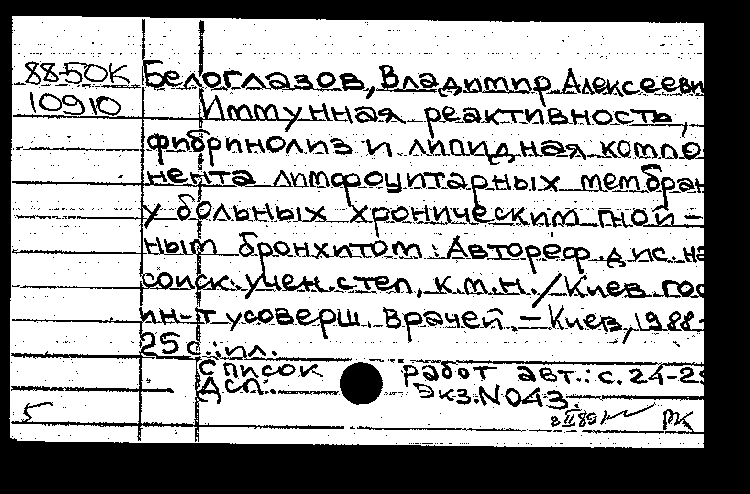 88-50К Белоглазов, Владимир Алексееви
10910 Иммунная реактивность,
фибринолиз и липидная компо
нента лимфоцитарных мембран
у больных хроническим гной-
ным бронхитом: Автореф. дис. на
соиск. учен. степ. к.м.н./Киев. гос
ин-т усоверш. врачей.-Киев, 1988-
25 с.: ил.
Список работ авт.: с. 24-25
ДСП. Экз. N 043.
5 РК